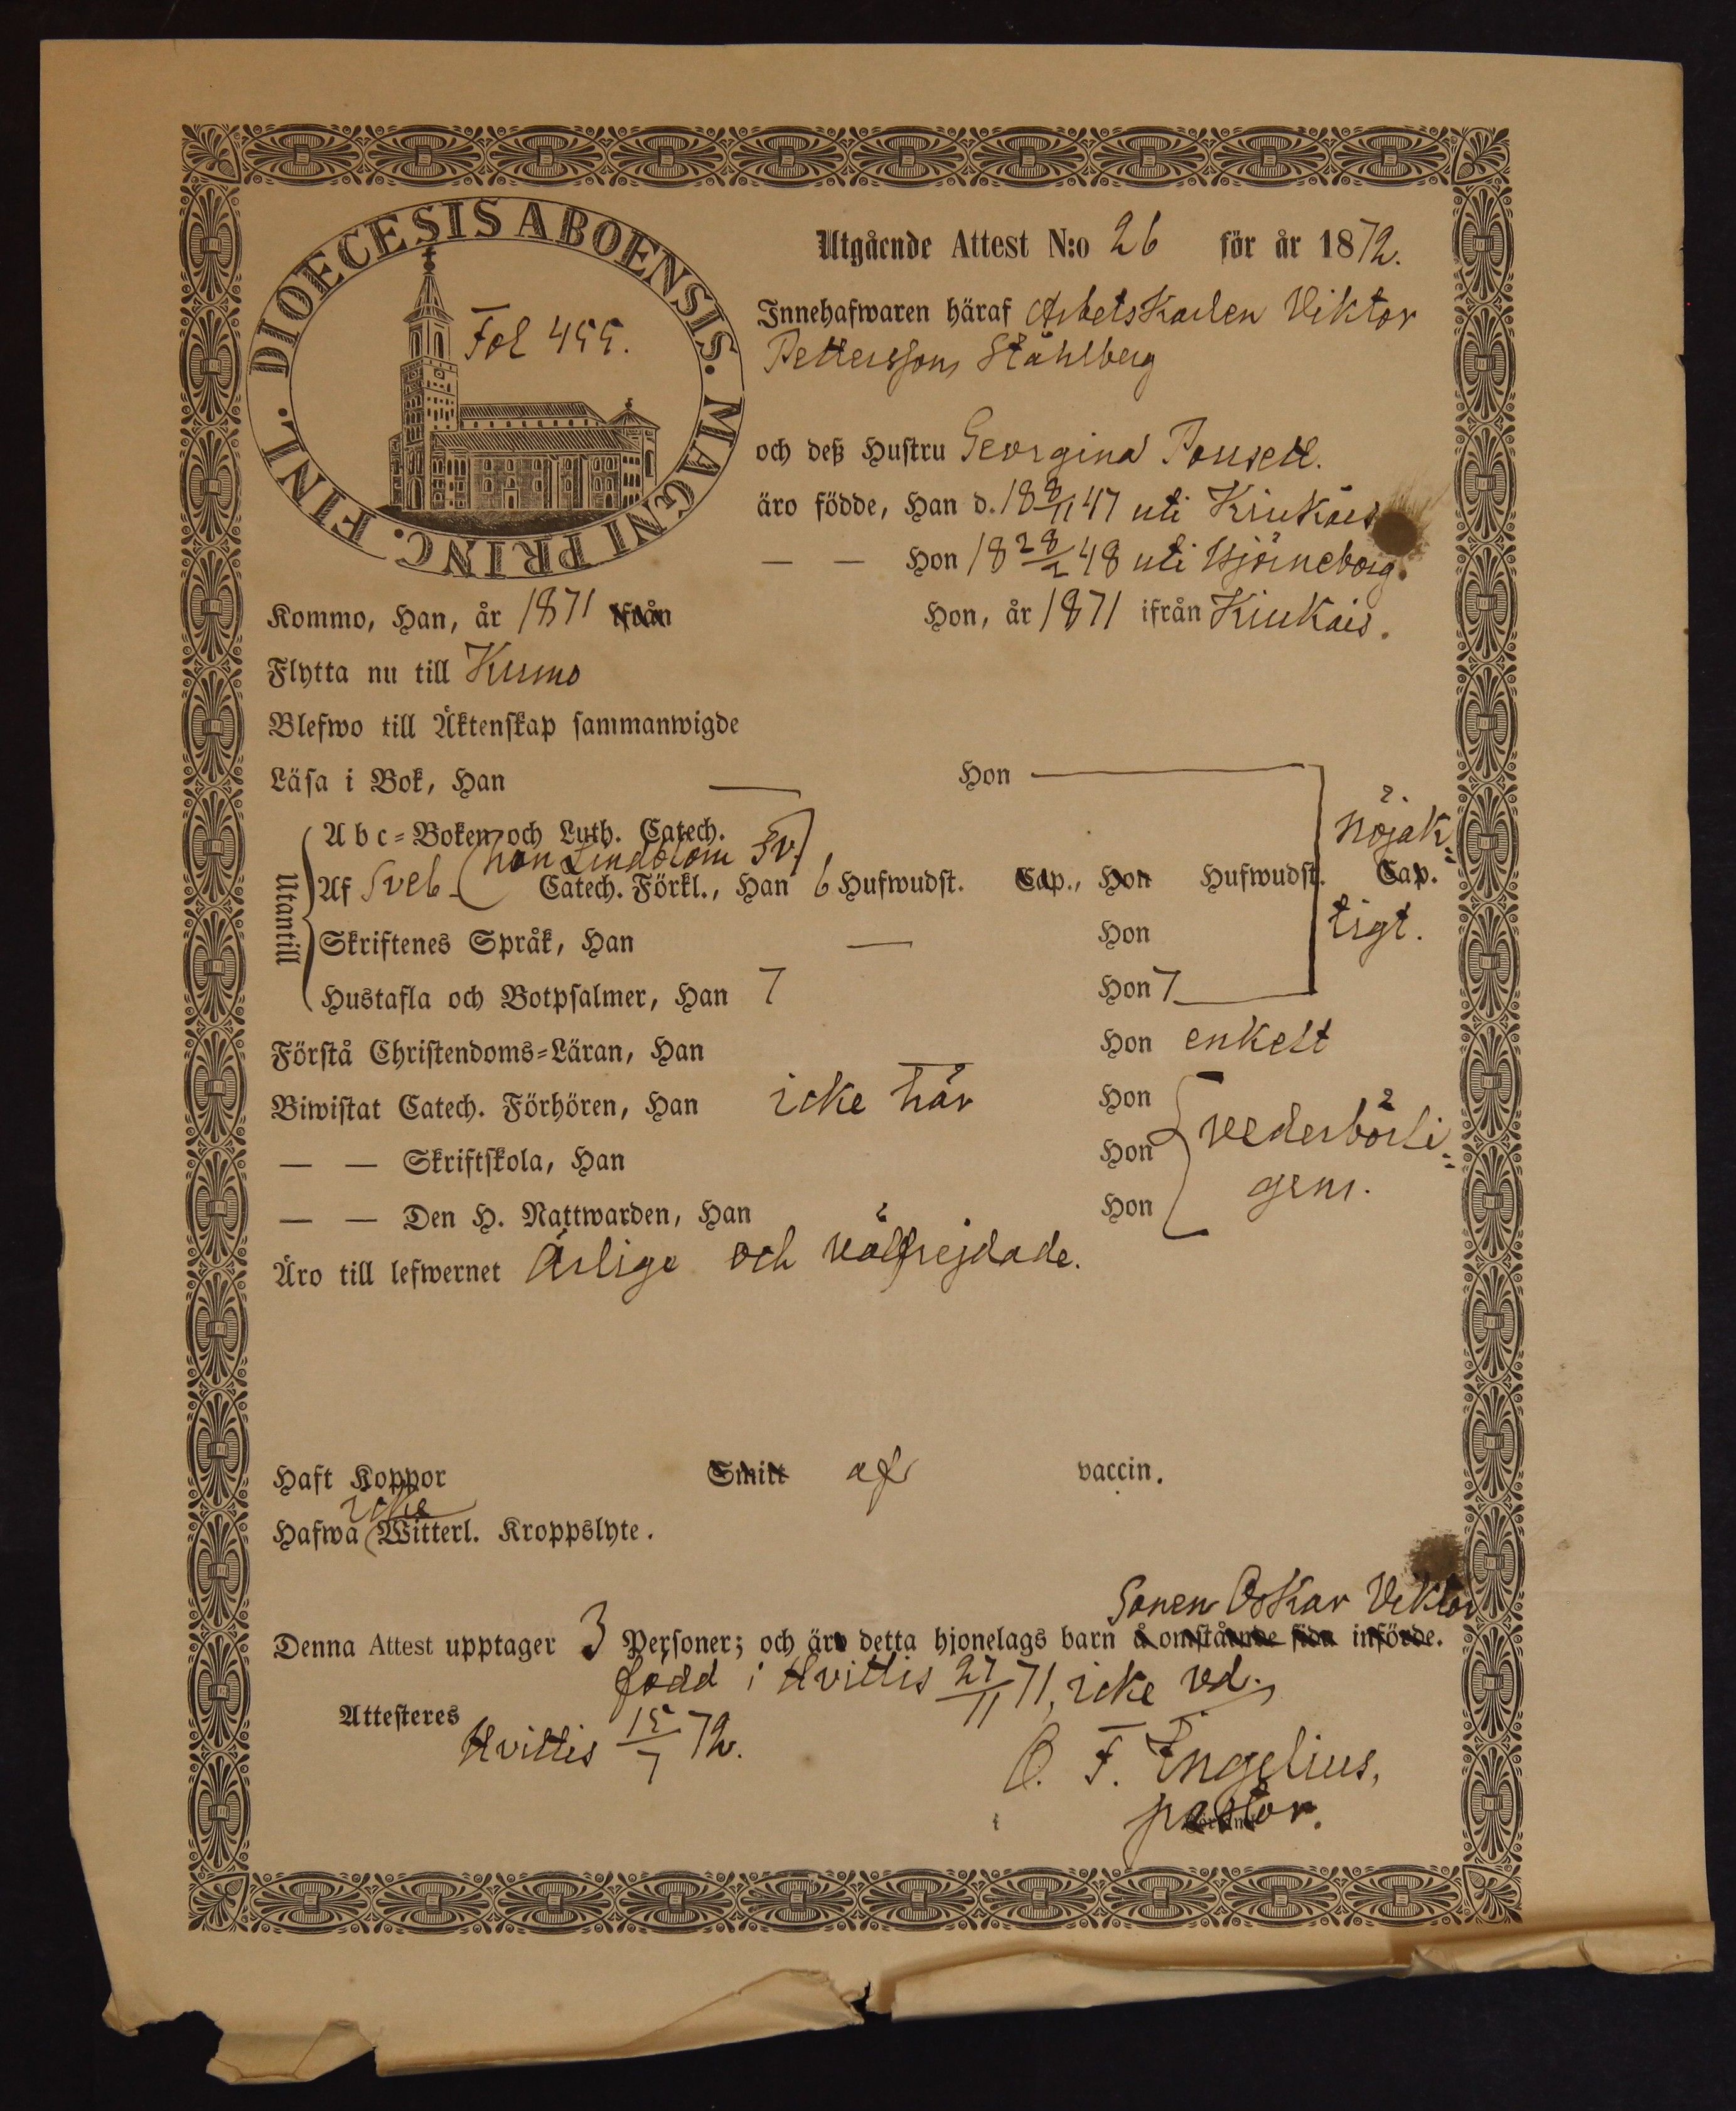 DIOECESIS ABOENSIS. MAGNI PRINC. FINL.
Fol 455.
Utgående Attest N:o 26 för år 1872.
Innehafwaren häraf Arbetskarlen Viktor
Pettersson, Ståhlberg
och deß Hustru Georgina Pousell.
äro födde, Han d. 18 8/11 47 uti Kiukais
— — Hon 18 28/2 48 uti Björneborg.
Kommo, Han, år 1871 ifrån Hon, år 1871 ifrån Kiukais.
Flytta nu till Kumo
Blefwo till Äktenskap sammanwigde
Läsa i Bok, Han — Hon —
nöjak=
Abc-Boken och Luth. Catech.
hon Lindblom Sv.
Utantill
Af Sveb. Catech. Förkl., Han 6 Hufwudst. Cap., Hon Hufwudst. Cap.
tigt.
Skriftenes Språk, Han — Hon
Hustafla och Botpsalmer, Han 7 Hon 7
Förstå Christendoms-Läran, Han Hon enkelt
Biwistat Catech. Förhören, Han icke här Hon vederbörli=
— — Skriftskola, Han Hon
gen.
— — Den H. Nattwarden, Han Hon
Äro till lefwernet Ärlige och välfrejdade.
Haft Koppor Smitt af vaccin.
icke
Hafwa Witterl. Kroppslyte.
Sonen Oskar Viktor
Denna Attest upptager 3 Personer; och äro detta hjonelags barn å omstående sida införde.
född i Hvittis 27/11 71, icke vd.
Attesteres
Hvittis 15/7 72.
O. F. Ingelius,
pastor.